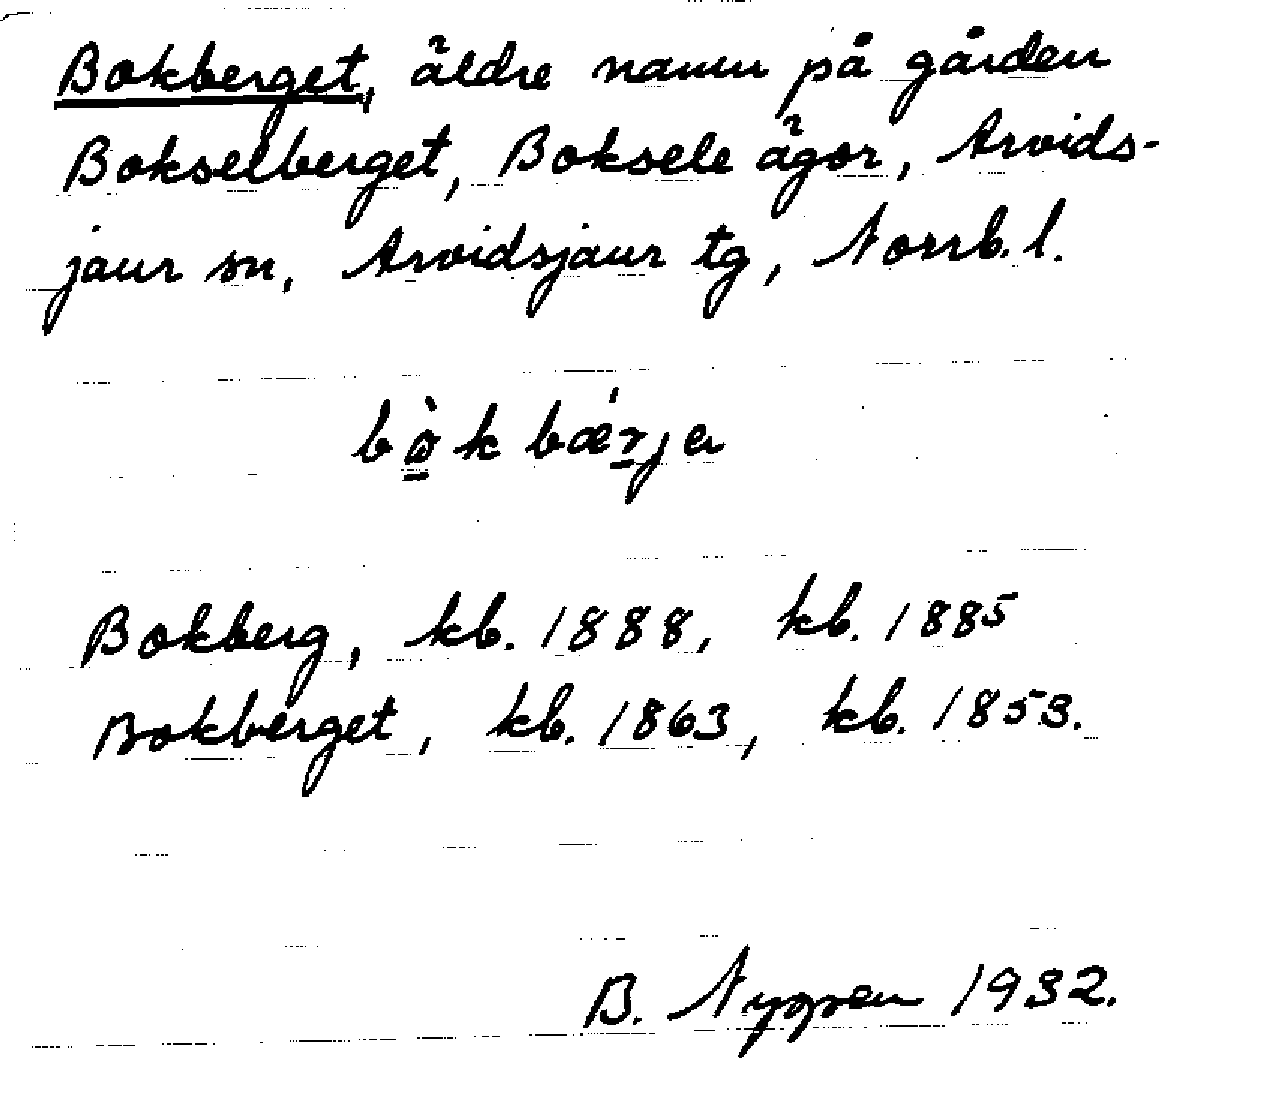 Bokberget, äldre namn på gården
Bokselberget, Boksele ägor, Arvids-
jaur sn, Arvidsjaur tg, Norrb. l.
bò̲kbæ̀r̲ja
Bokberg, kb. 1888, kb. 1885
Bokberget, kb. 1863, kb. 1853.
B. Nygren 1932.